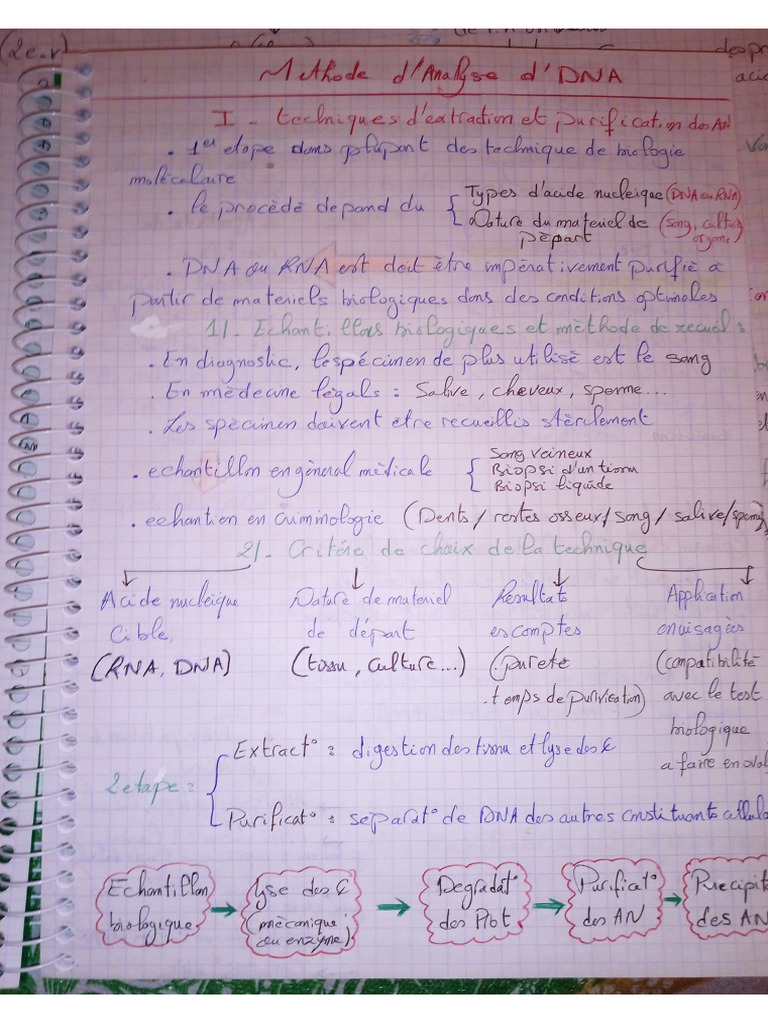 (2e.r)
despr
acid
Methode d'Analyse d'DNA
I - techniques d'extraction et purification des AN
. 1er etape dans plupart des technique de biologie
moléculaire
. le procédé depand du { Types d'acide nucleique (DNA ou RNA)
Nature du materiel de (sang, culture
départ organe)
. DNA ou RNA est doit être impérativement purifié a
partir de materiels biologiques dans des conditions optimales
1/- Echantillons biologiques et méthode de recueil :
. En diagnostic, le spécimen de plus utilisé est le sang
. En médecine légals : Salive, cheveux, sperme...
. Les spécimen doivent être recueillis stérilement
. echantillon en général médicale { Sang veineux
Biopsi d'un tissu
Biopsi liquide
. echantien en Criminologie (Dents / restes osseux / sang / salive / sperme)
2/- Critére de choix de la technique
Acide nucleique Nature de materiel Résultats Application
Cible, de départ escomptés envisagées
(RNA, DNA) (tissu, culture...) (pureté (compatibilité
. temps de purivication) avec le test
biologique
a faire en aval
2 etape : { Extract° : digestion des tissu et lyse des ¢
Purificat° : séparat° de DNA des autres constituants cellula
Echantillon lyse des ¢ Degradat° Purificat° Precipit
biologique (mécanique des Prot des AN des AN
ou enzyme)